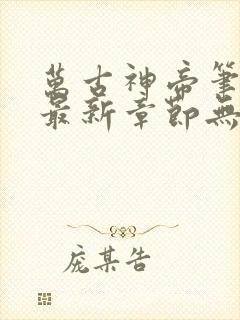 萬古神帝筆
最新章節無
庞某告